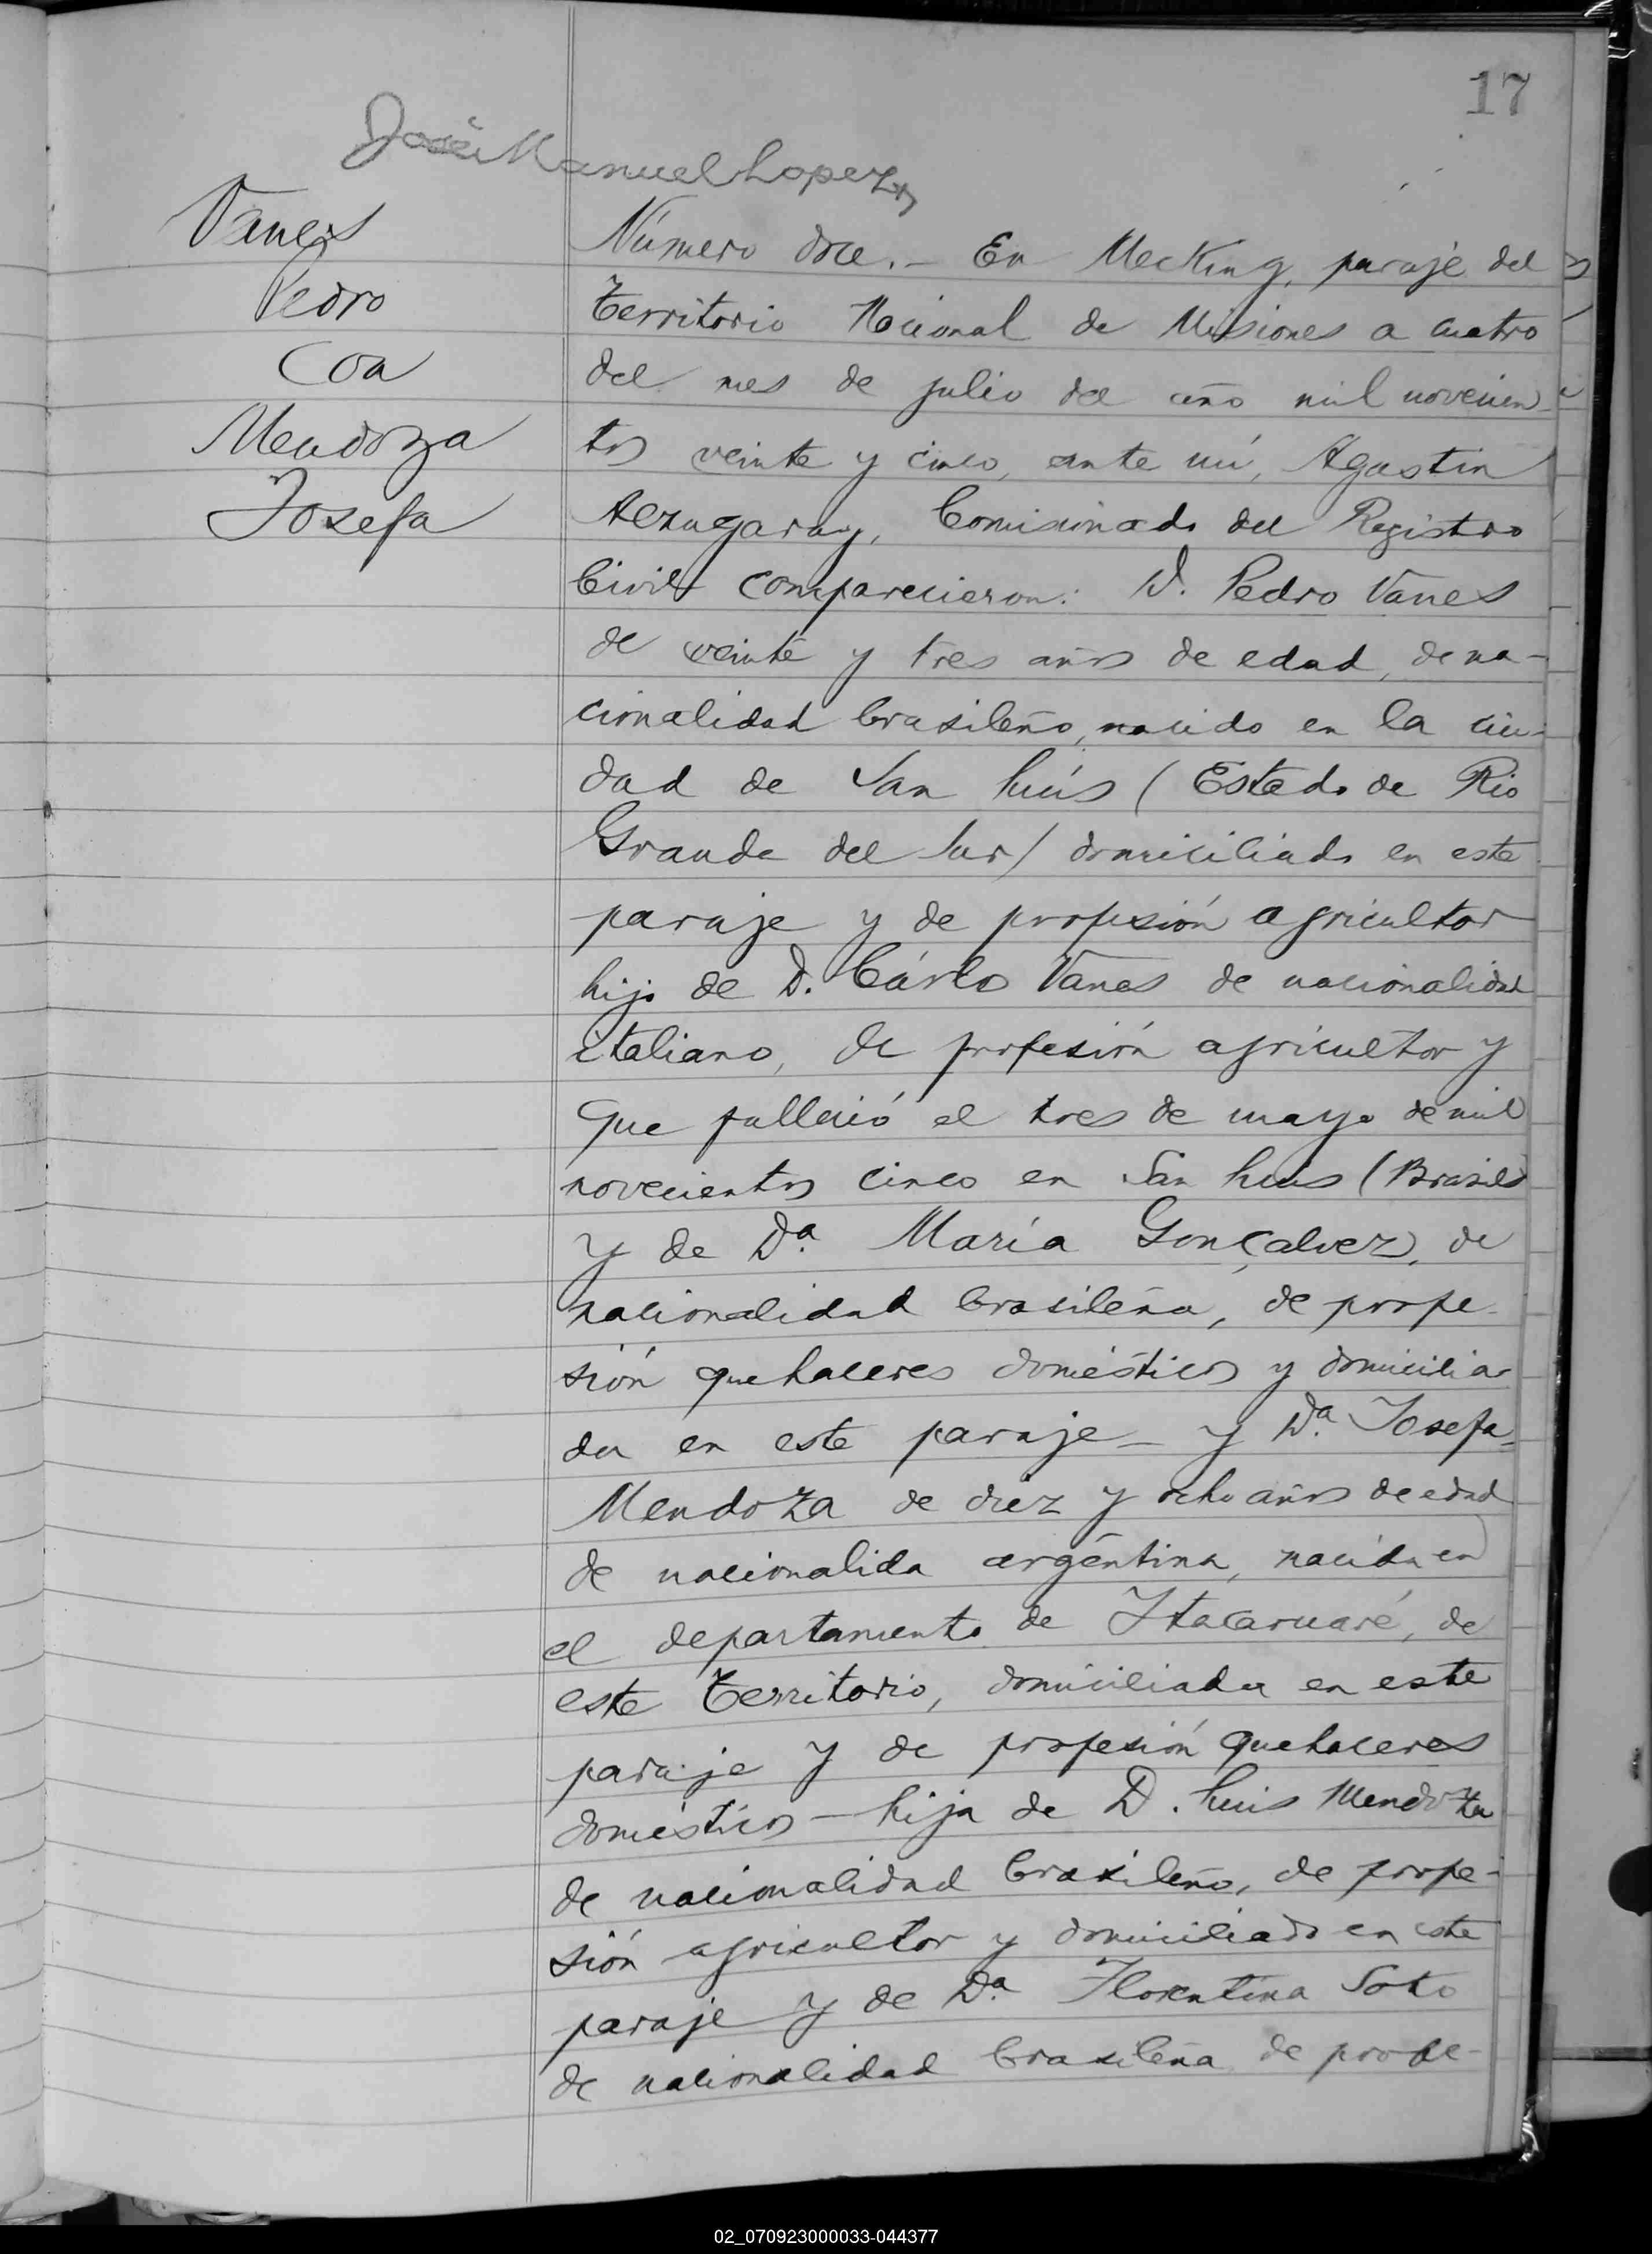 17
José Manuel Lopez
Vanes
Pedro
Con
Mendoza
Josefa
Número doce.- En MecKing, paraje del
Territorio Nacional de Misiones a cuatro
del mes de julio del año mil novecien
tos veinte y cinco, ante mí, Agustin
Aezugaray, Comisionado del Registro
Civil comparecieron: D. Pedro Vanes
de veinte y tres años de edad, de na-
cionalidad brasileño, nacido en la ciu-
dad de San Luís (Estado de Rio
Grande del Sur) domiciliado en este
paraje y de profesión agricultor
hijo de D. Cárlo Vanes de nacionalidad
italiano, de profesión agricultor y
que falleció el tres de mayo de mil
novecientos cinco en San Luis (Brasil)
y de Da. María Gonçalvez, de
nacionalidad brasileña, de profe-
sión quehaceres domésticos y domicilia
da en este paraje - y Da. Josefa
Mendoza de diez y ocho años de edad
de nacionalida argentina, nacida en
el departamento de Itacaruaré, de
este Territorio, domiciliada en este
paraje y de profesión quehaceres
domésticos - hija de D. Luis Mendoza
de nacionalidad brasileño, de profe-
sión agricultor y domiciliado en este
paraje y de Da. Florentina Soto
de nacionalidad brasileña de profe-
02_070923000033-044377